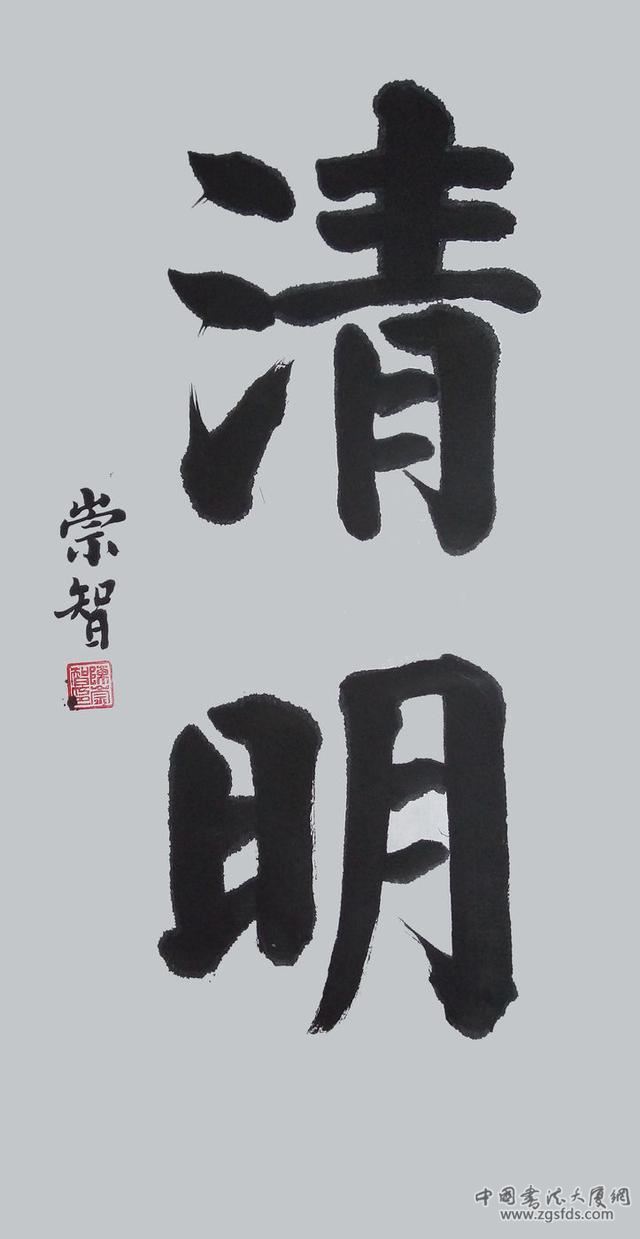 清明
崇智
陳崇智印
中国书法大厦網
www.zgsfds.com